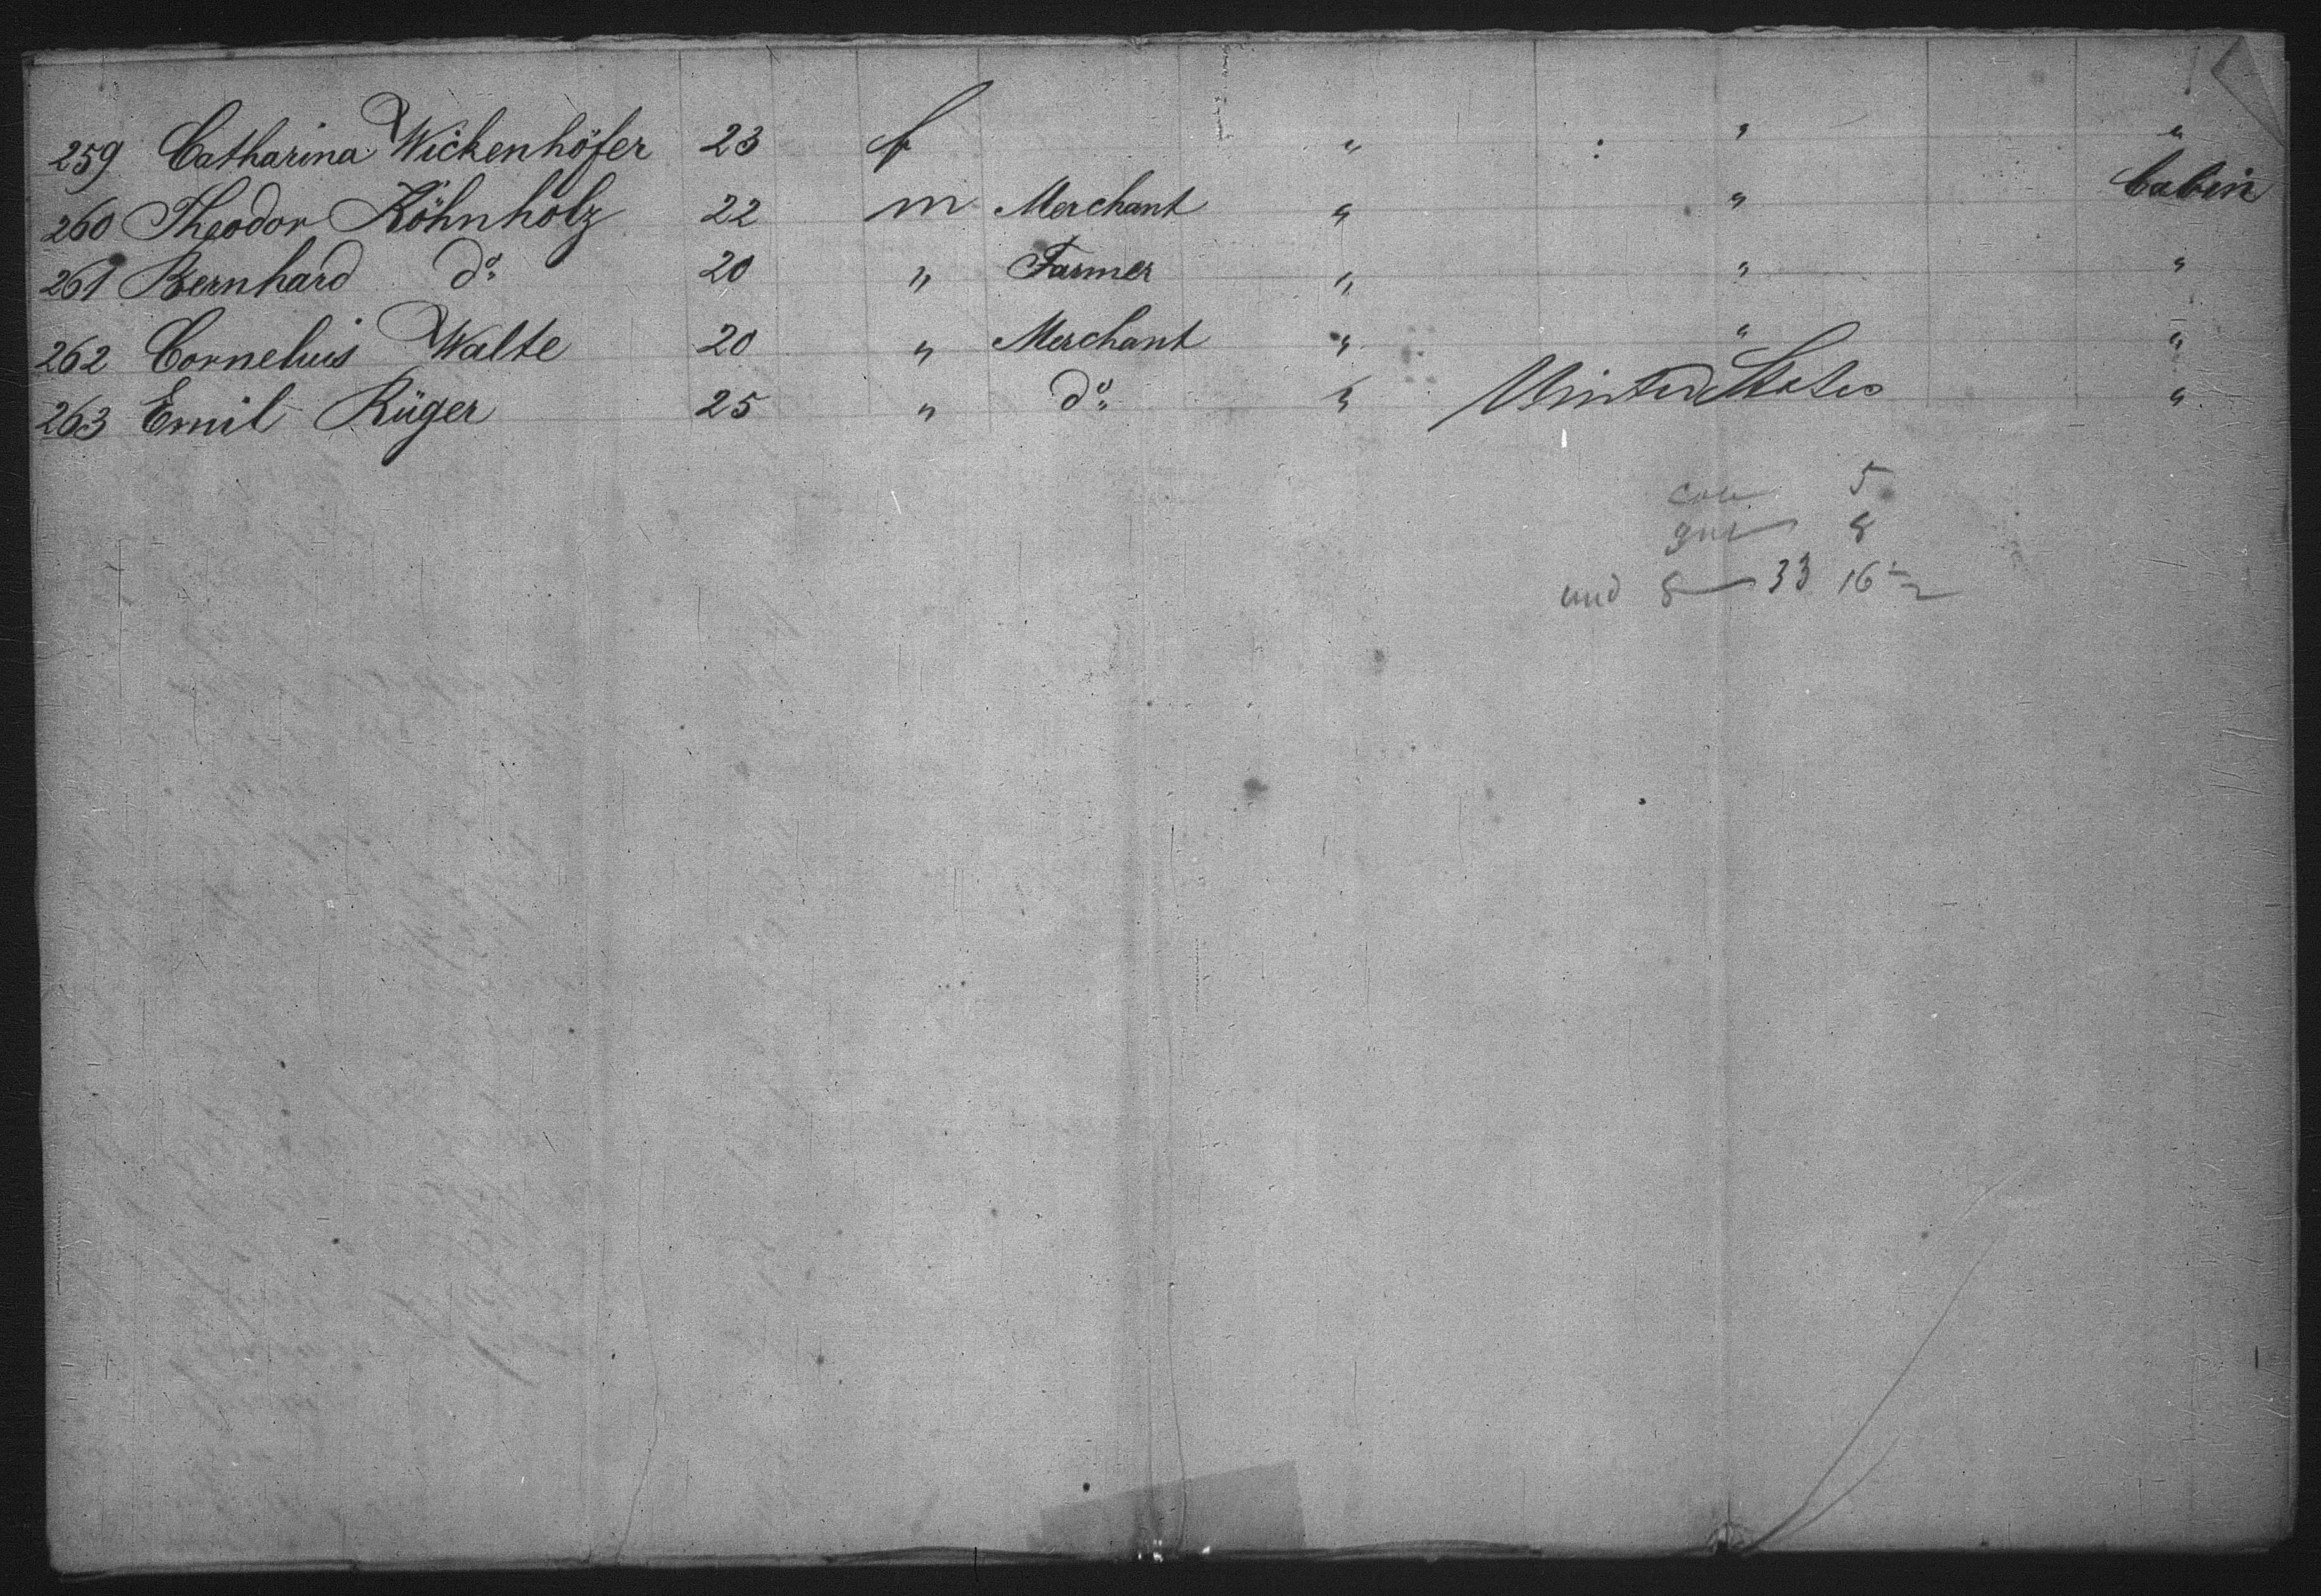 259 Catharina Wickenhöfer 23 f " " "
260 Theodor Köhnholz 22 m Merchant " " Cabin
261 Bernhard do. 20 " Farmer " " "
262 Cornelius Walte 20 " Merchant " " "
263 Emil Rüger 25 " do. " United States "
5
8
und 8 — 33 16